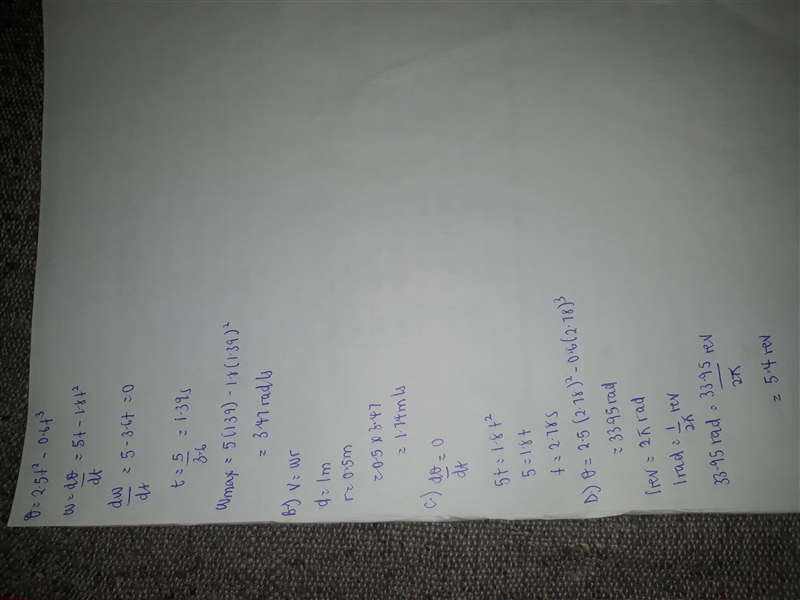 θ = 2.5t² - 0.6t³
ω = dθ/dt = 5t - 1.8t²
dω/dt = 5 - 3.6t = 0
t = 5/3.6 = 1.39s
ωmax = 5(1.39) - 1.8(1.39)²
= 3.47 rad/s
B) V = ωr
d = 1m
r = 0.5m
= 0.5 x 3.47
= 1.74 m/s
C) dθ/dt = 0
5t = 1.8t²
5 = 1.8t
t = 2.78s
D) θ = 2.5(2.78)² - 0.6(2.78)³
= 33.95 rad
1rev = 2π rad
1 rad = 1/2π rev
33.95 rad = 33.95/2π rev
= 5.4 rev